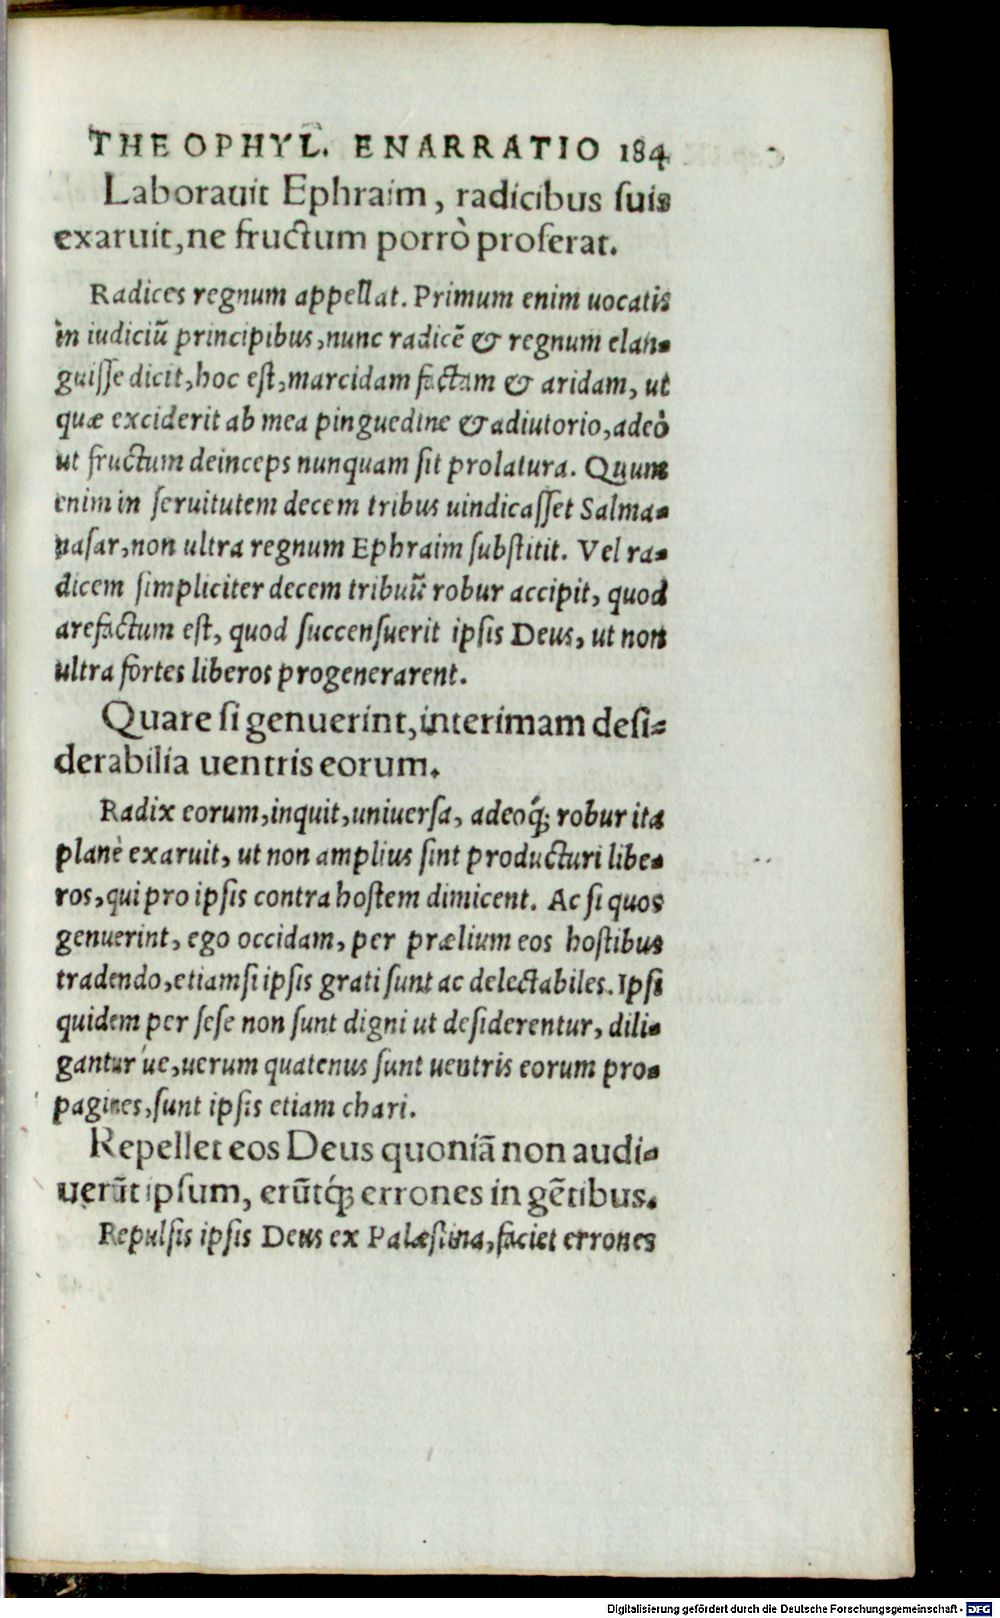 THEOPHYL. ENARRATIO 184
Laborauit Ephraim, radicibus suis
exaruit, ne fructum porrò proferat.
Radices regnum appellat. Primum enim uocatis
in iudiciũ principibus, nunc radicẽ & regnum elan-
guisse dicit, hoc est, marcidam factam & aridam, ut
quæ exciderit ab mea pinguedine & adiutorio, adeò
ut fructum deinceps nunquam sit prolatura. Quum
enim in seruitutem decem tribus uindicasset Salma-
nasar, non ultra regnum Ephraim substitit. Vel ra-
dicem simpliciter decem tribuũ robur accipit, quod
arefactum est, quod succensuerit ipsis Deus, ut non
ultra fortes liberos progenerarent.
Quare si genuerint, interimam desi-
derabilia uentris eorum.
Radix eorum, inquit, uniuersa, adeoq́; robur ita
planè exaruit, ut non amplius sint producturi libe-
ros, qui pro ipsis contra hostem dimicent. Ac si quos
genuerint, ego occidam, per prælium eos hostibus
tradendo, etiamsi ipsis grati sunt ac delectabiles. Ipsi
quidem per sese non sunt digni ut desiderentur, dili-
gantur ue, uerum quatenus sunt uentris eorum pro-
pagines, sunt ipsis etiam chari.
Repellet eos Deus quoniã non audi-
uerũt ipsum, erũtq́; errones in gẽtibus.
Repulsis ipsis Deus ex Palæstina, faciet errones
Digitalisierung gefördert durch die Deutsche Forschungsgemeinschaft - DFG